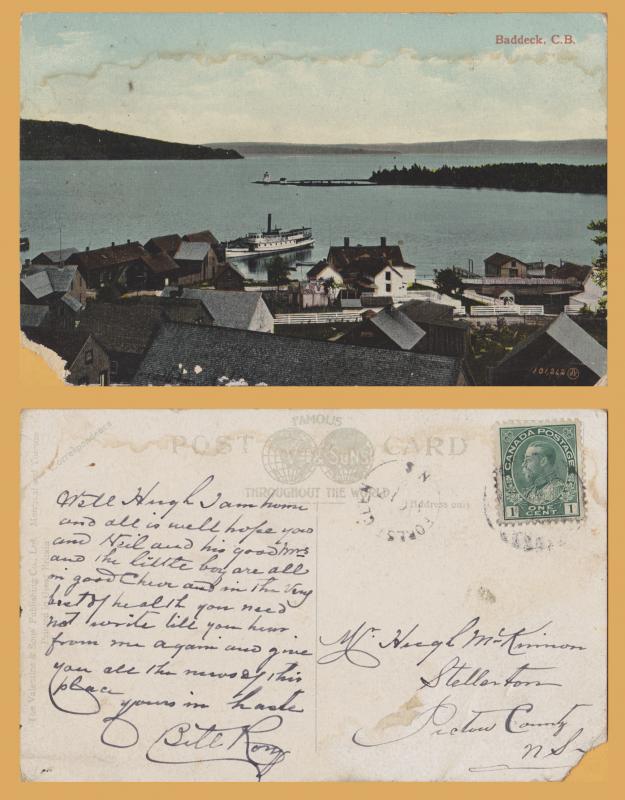 Baddeck, C.B.
101,262 JV
Correspondence
FAMOUS
POST CARD
THROUGHOUT THE WORLD
Address only
The Valentine & Sons' Publishing Co., Ltd. Montreal and Toronto
CANADA POSTAGE
1 ONE CENT 1
N.S.
Well Hugh I am home
and all is well hope you
and Neil and his good Mrs
and the little boy are all
in good Cheer and in the very
best of health you need
not write till you hear
from me again and give
you all the news of this
place
yours in haste
Bill
Mr Hugh McKinnon
Stellarton
Pictou County
N.S.